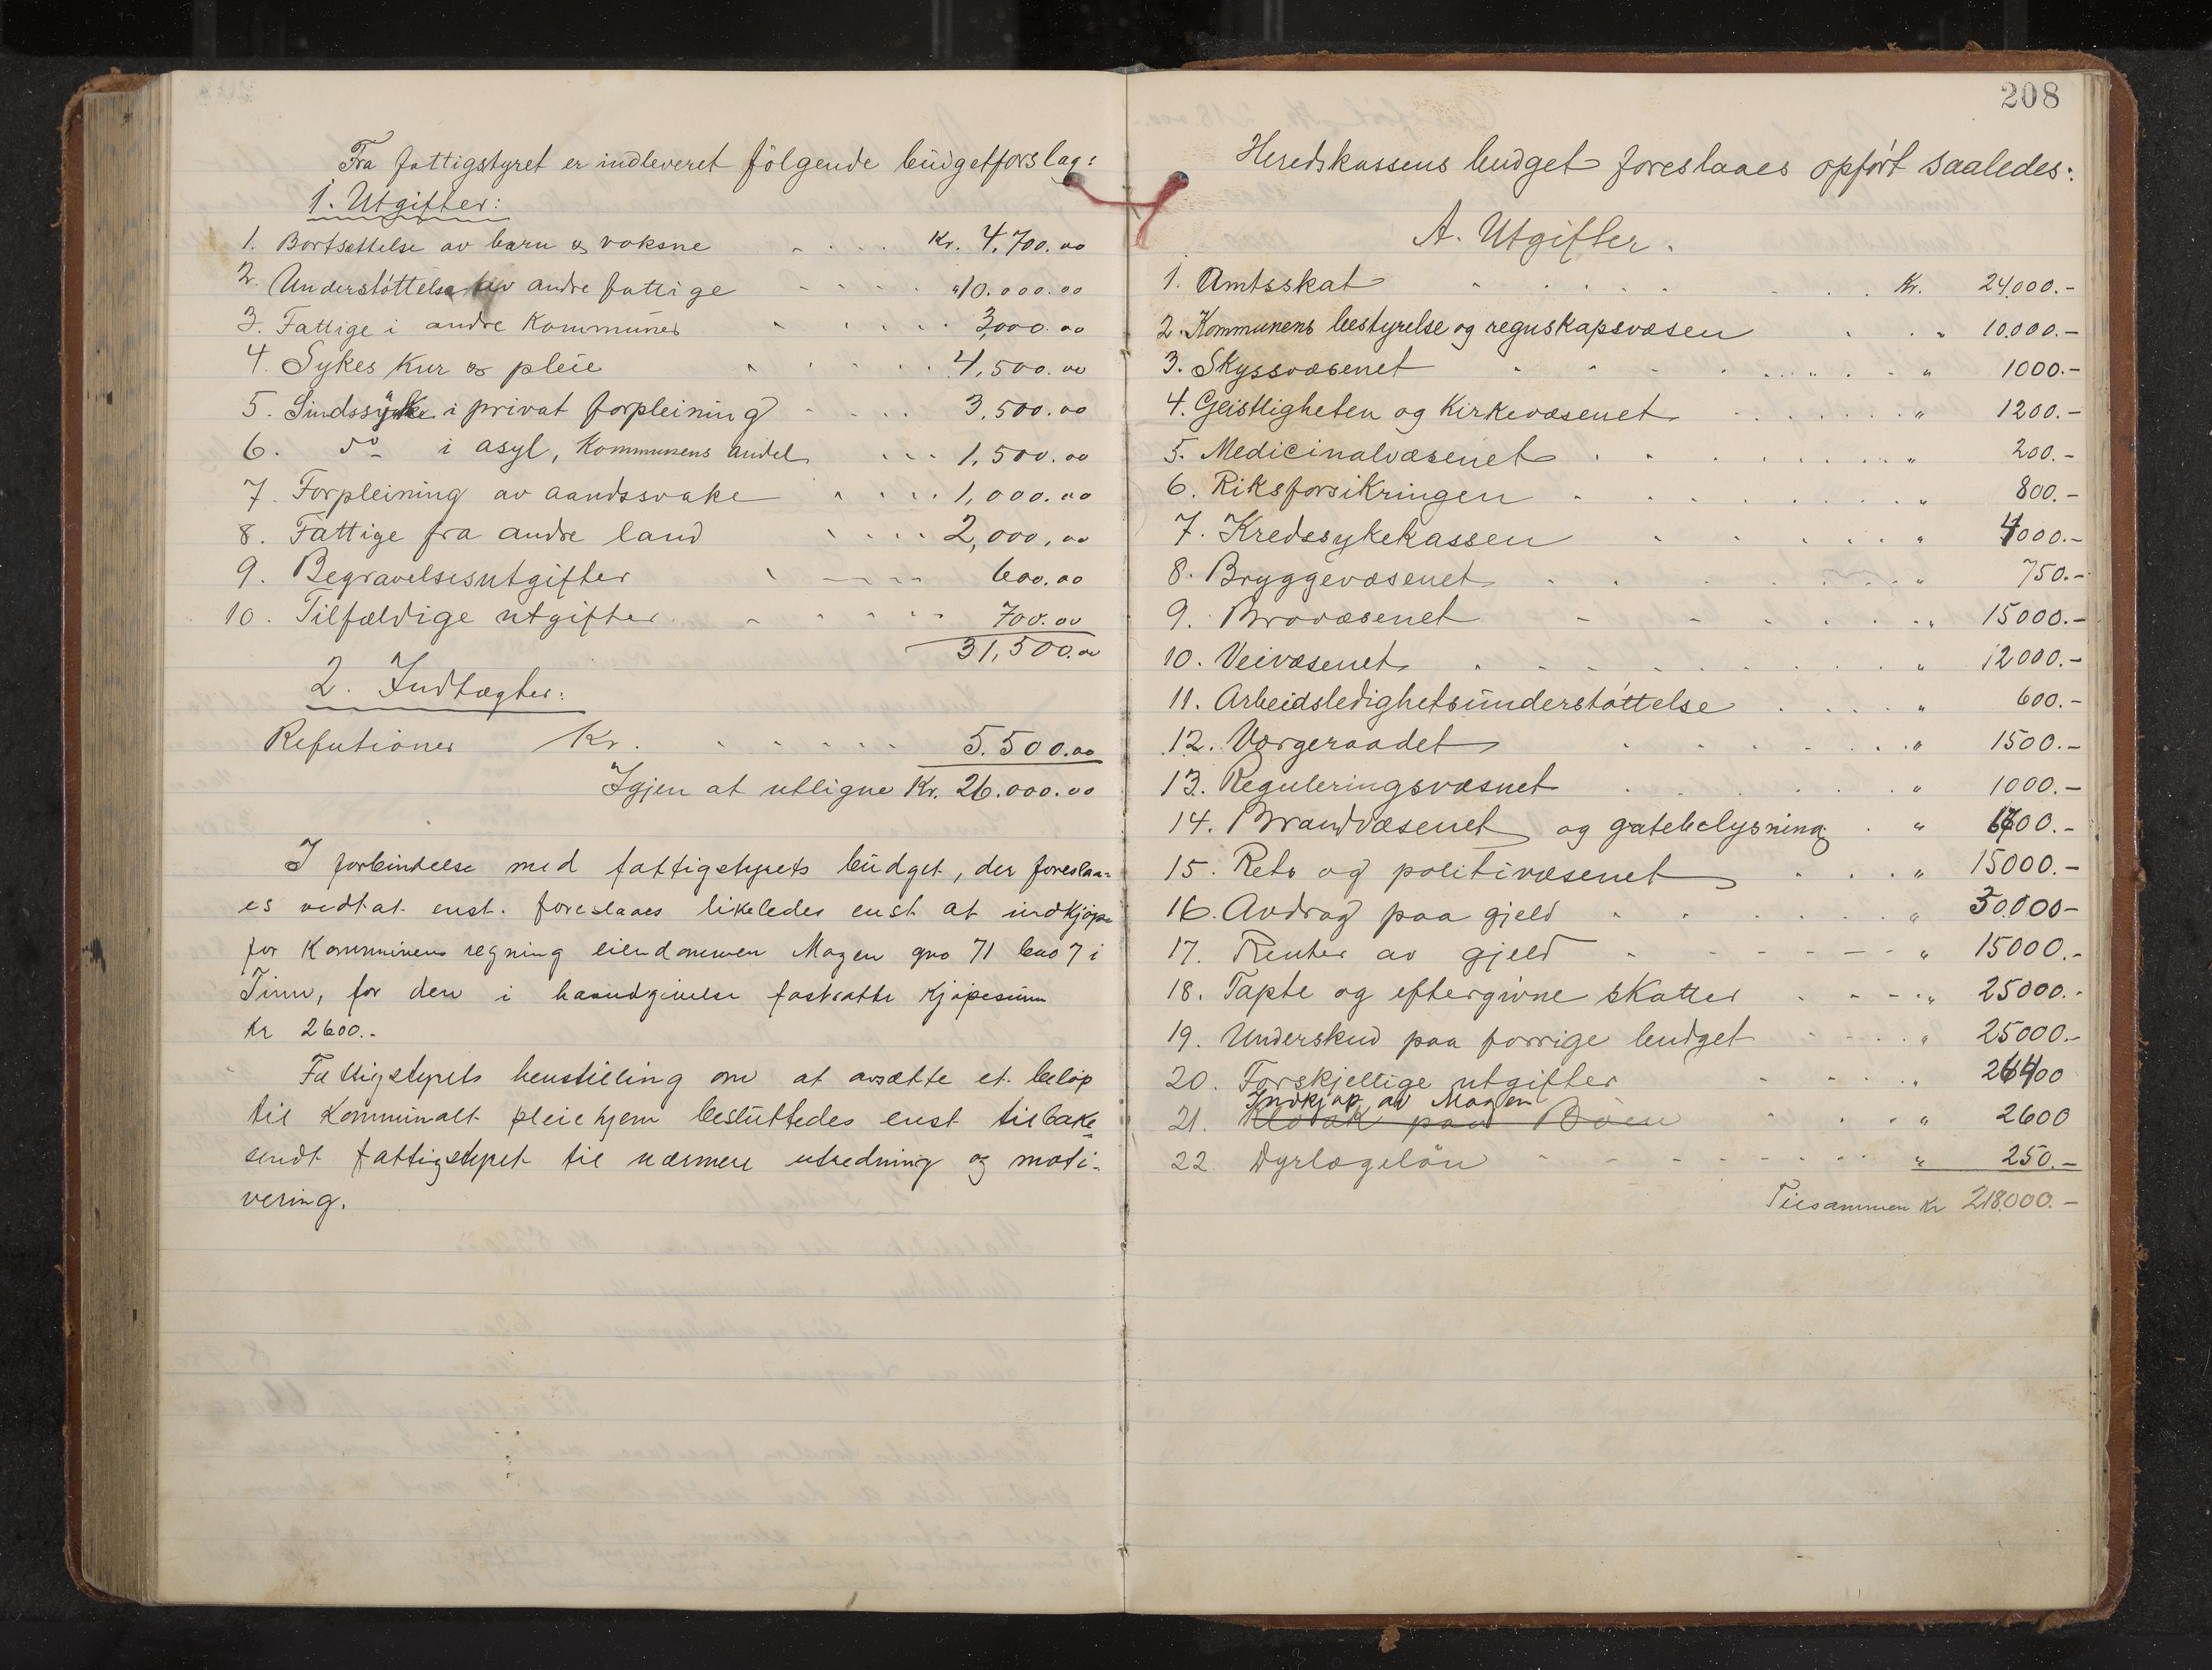 Fra fattigstyret er indleveret følgende budgetforslag:
1. Utgifter:
1. Bortsættelse av barn & voksne . . . . Kr. 4,700.00
2. Understøttelse av andre fattige . . . . "10.000.00
3. Fattige i andre Kommuner . . . . 3,000.00
4. Sykes Kur & pleie . . . . 4,500.00
5. Sindssyke i privat forpleining . . . . 3,500.00
6. do i asyl, Kommunens andel . . . 1,500.00
7. Forpleining av aandssvake . . . . 1,000.00
8. Fattige fra andre land . . . . 2,000,00
9. Begravelsesutgifter . . . . 600.00
10. Tilfældige utgifter . . . . 700.00
31,500.00
2. Indtægter:
Refutioner Kr. . . . . . 5.500.00
Igjen at utligne Kr. 26.000.00
I forbindelse med fattigstyrets budget, der foreslaa-
es vedtat enst. foreslaaes likeledes enst at indkjøpe
for Kommunens regning eiendommen Mogen gno 71 bno 7 i
Tinn, for den i haandgivelse fastsatte kjøpesum
Kr 2600.-
Fattigstyrets henstilling om at avsætte et beløp
til Kommunalt pleiehjem besluttedes enst tilbake-
sendt fattigstyret til nærmere utredning og moti-
vering.
208
Heredskassens budget foreslaaes opført saaledes:
A. Utgifter.
1. Amtsskat . . . . Kr. 24,000.-
2. Kommunens bestyrelse og regnskapsvæsen . . " 10.000.-
3. Skyssvæsenet . . . . " 1000.-
4. Geistligheten og Kirkevæsenet . . . . " 1200.-
5. Medicinalvæsenet . . . . " 200.-
6. Riksforsikringen . . . . " 800.-
7. Kredssykekassen . . . . " 4000.-
8. Bryggevæsenet . . . . " 750.-
9. Brovæsenet . . . . " 15000.-
10. Veivæsenet . . . . " 12000.-
11. Arbeidsledighetsunderstøttelse . . . . " 600.-
12. Værgeraadet . . . . " 1500.-
13. Reguleringsvæsnet . . . . " 1000.-
14. Brandvæsenet og gatebelysning . "
15. Rets og politivæsenet . . . " 15000.-
16. Avdrag paa gjeld . . . . " 30.000-
17. Renter av gjeld . . . . " 15000.-
18. Tapte og eftergivne skatter . . . . " 25000.-
19. Underskud paa forrige budget . . . . " 25000.-
20. Forskjellige utgifter . . . . " 26400
Indkjøp av Mogen
21. paa Bøen . . . " 2600
22. Dyrlægeløn . . . . " 250.-
Tilsammen Kr 218.000.-